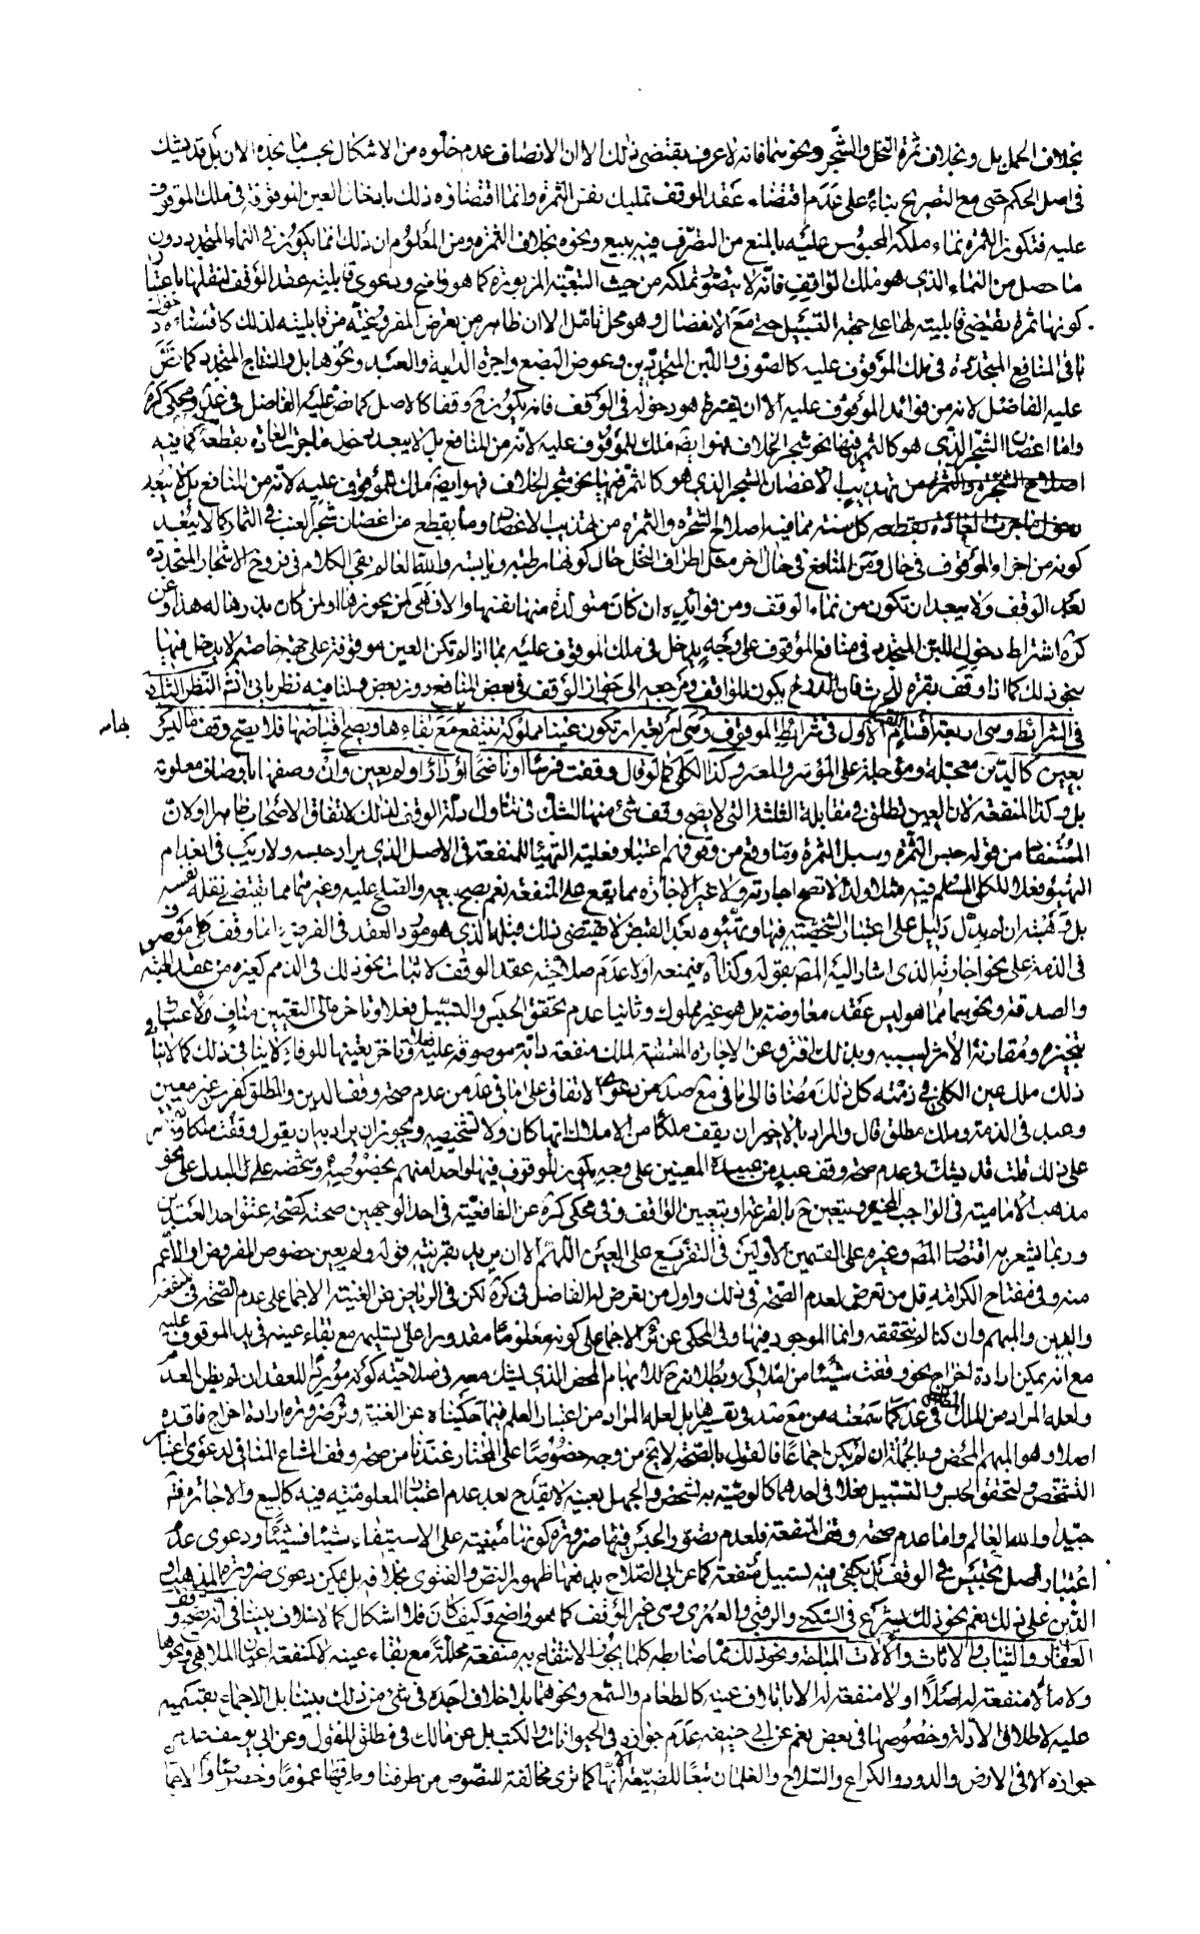 بخلاف الحمل بل وبخلاف ثمرة النخل والشجر ونحوهما فانه لا عرف يقتضى ذلك الا ان الانصاف عدم خلوه من الاشكال بحسب ما نجده الان بل قد يشك
فى اصل الحكم حتى مع التصريح بناء على عدم اقتضاء عقد الوقف تمليك نفس الثمرة وانما اقتضاؤه ذلك بادخال العين الموقوفة فى ملك الموقوف
عليه فتكون الثمرة نماء ملكه المحبوس عليه بالمنع من التصرف فيه ببيع ونحوه بخلاف الثمرة ومن المعلوم ان ذلك انما يكون فى النماء المتجدد دون
ما حصل من النماء الذى هو ملك الواقف فانه لا يتصور تملكه من حيث التبعية المزبورة كما هو واضح ودعوى قابلية عقد الوقف لنقلها باعتبار
كونها ثمرة يقتضى قابليته لها على جهة التسبيل حتى مع الانفصال وهو محل تامل الا ان ظاهر من تعرض المفروغية من قابليته لذلك كاقتضائه دخول
باقى المنافع المتجددة فى ملك الموقوف عليه كالصوف واللبن المتجددين وعوض البضع واجرة الدابة والعبد ونحوها بل والنتاج المتجدد كما نص
عليه الفاضل لانه من فوائد الموقوف عليه الا ان يشترط هو دخوله فى الوقف فانه يكون وقفا كالاصل كما نص عليه الفاضل فى عد ومحكى كرة
واما اغصان الشجر الذى هو كالثمر فيها نحو شجر الخلاف فهو ايضا ملك للموقوف عليه لانه من المنافع بل لا يبعد دخول ما جرت العادة بقطعه كما فيه
اصلاح الشجرة والثمرة من تهذيب الاغصان الشجر الذى هو كالثمرة فيها نحو شجر الخلاف فهو ايضا ملك للموقوف عليه لانه من المنافع بل لا يبعد
دخول ما جرت العادة بقطعه كل سنة مما فيه اصلاح الشجرة والثمرة من تهذيب الاغصان وما يقطع من اغصان شجر العنب فى الثمار كما لا يبعد
كونه من اجزاء الموقوف فى حال ومن المنافع فى حال اخر مثل اطراف النخل حال كونها رطبة ويابسة والله العالم بقى الكلام فى فروخ الاشجار المتجددة
بعد الوقف ولا يبعد ان تكون من نماء الوقف ومن فوائده ان كانت متولدة منها بنفسها والا فهى لمن يحوزها او لمن كان بذرها له هذا وعن
كرة اشتراط دخول اللبن المتجدد فى منافع الموقوف على وجه يدخل فى ملك الموقوف عليه بما اذا لم تكن العين موقوفة على جهة خاصة لا يدخل فيها
نحو ذلك كما اذا وقف بقرة للحرث فان الدر ح يكون للواقف ومرجعه الى جواز الوقف فى بعض المنافع دون بعض ولنا فيه نظر ياتى انشم النظر الثانى
فى الشرائط وهى اربعة اقسام القسم الاول فى شرائط الموقوف وهى اربعة ان تكون عينا مملوكة ينتفع مع بقاءها ويصح اقباضها فلا يصح وقف ما ليس
بعين كالدين معجلة ومؤجلة على الموسر والمعسر وكذا الكلى كما لو قال وقفت فرسا او ناضحا او دارا ولم يعين وان وصفها باوصاف معلومة
بل وكذا المنفعة لان العين تطلق فى مقابلة الثلثة التى لا يصح وقف شئ منها للشك فى تناول ادلة الوقف لذلك لاتفاق الاصحاب ظاهرا ولان
المستفاد من قوله حبس الثمرة وسبل الثمرة وما وقع من وقوفهم اعتبار فعلية التهيا للمنفعة فى الاصل الذى يراد حبسه ولا ريب فى انعدام
التهيؤ فعلا للكلى المسلم فيه مثلا ولذا لا تصح اجارته ولا غير الاجارة مما يقع على المنفعة نعم يصح بيعه والصلح عليه وغيرهما مما يقتضى نقله نفسه
فى الذمة على نحو اجارته الذى اشار اليه المصـ بقوله وكذا لا فيمنعه اولا عدم صلاحية عقد الوقف لاثبات نحو ذلك فى الذمم كغيره من عقد الهبة
والصدقة ونحوهما مما هو ليس عقد معاوضة بل هو غير مملوك وثانيا عدم تحقق الحبس والتسبيل فعلا وتاخره الى التعيين مناف ولاعتبار
تنجيزه ومقارنة الاثر لسببه وبذلك افترق عن الاجارة المقتضية لملك منفعة دابة موصوفة عليه فعلا وتاخر تعيينها للوفاء لا ينافى ذلك كما لا ينافى
ذلك ملك عين الكلى فى ذمته كل ذلك مضافا الى ما فى مع صد من دعوى الاتفاق على ما فى عد من عدم صحة وقف الدين والمطلق كفرس غير معين
وعبد فى الذمة وملك مطلق قال والمراد بالاخير ان يقف ملكا من الاملاك ايها كان ولا تشخيص ويجوز ان يراد به ان يقول وقفت ملكا
على ذلك قلت قد يشك فى عدم صحة وقف عبد من عبيده المعينين على وجه يكون الموقوف فيها واحدا منهم بخصوصه وشخصه على البدل على نحو
مذهب الامامية فى الواجب المخير ويتعين ح بالقرعة او بتعيين الواقف وفى محكى كرة عن الشافعية فى احد الوجهين صحته كصحة عتق احد العبدين
وربما يشعر به اقتصار المصـ وغيره على القسمين الاولين فى التفريع على العين اللهم الا ان يريد بقرينة قوله ولم يعين خصوص المفروض او الاعم
منه وفى مفتاح الكرامة قل من تعرض لعدم الصحة فى ذلك واول من تعرض له الفاضل فى كرة لكن فى الرياض عن الغنية الاجماع على عدم الصحة فى
والدين والمبهم وان كنا لم نتحققه وانما الموجود فيها وفى المحكى عن ئر الاجماع على كونه معلوما مقدورا على تسليمه مع بقاء عينه فى يد الموقوف عليه
مع انه يمكن ارادة اخراج نحو وقفت شيئا من املاكى وبطلانه ح للابهام المحض الذى يشك معه فى صلاحيته كونه موردا للعقد ان لم يظن العدم
ولعله المراد من الملك فى عد كما سمعته من مع صد فى تفسيرها بل لعله المراد من اعتبار العلم فيما حكيناه عن الغنية وئر ضرورة ارادة اخراج فاقده
اصلا وهو المبهم المحض وبالجملة ان لم يكن اجماعا فالقول بالصحة لا يخ من وجه خصوصا على المختار عندنا من صحة وقف المشاع المنافى لدعوى اعتبار
التشخص ولتحقق الحبس والتسبيل فعلا فى احدهما كالوصية به لشخص والجهل بعينه لا يقدح بعد عدم اعتبار المعلومية فيه كالبيع والاجارة فت
جيدا والله العالم واما عدم صحة وقف المنفعة فلعدم تصور الحبس فيها ضرورة كونها مبنية على الاستيفاء شيئا فشيئا ودعوى عدم
اعتبار اصل تحبيس فى الوقف بل يكفى فيه تسبيل منفعة كما عن ابى الصلاح يدفعها ظهور النص والفتوى بخلافه بل يمكن دعوى ضرورة المذهب
الدين على ذلك نعم نحو ذلك يشرع فى السكنى والرقبى والعمرى وهى غير الوقف كما هو واضح وكيف كان فلا اشكال كما لا خلاف بيننا فى انه يصح وقف
العقار والثياب والاثاث والالات المباحة ونحو ذلك مما ضابطه كلما يجوز الانتفاع به منفعة محللة مع بقاء عينه لا كمنفعة اعيان الملاهى ونحوها
ولا ما لا منفعة له اصلا او لا منفعة له الا باتلاف عينه كالطعام والشمع ونحوهما بلا خلاف اجده فى شئ من ذلك بيننا بل الاجماع بقسميه
عليه لاطلاق الادلة وخصوصها فى بعض نعم عن ابى حنيفة عدم جوازه فى الحيوانات والكتب بل عن مالك فى مطلق المنقول وعن ابى يوسف عدم
جوازه الا فى الارض والدور والكراع والسلاح والغلمان تبعا للضيعة انها كما ترى مخالفة للنصوص من طرفنا وطرقها عموما وخصوصا والاجماع